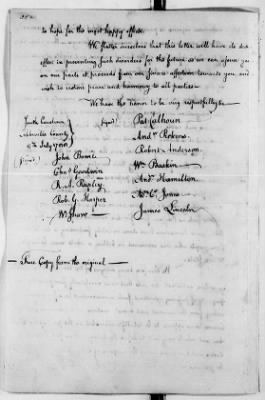 to hope for the most happy effects.
We flatter ourselves that this letter will have its due
effect in preventing such disorders for the future as we can assure you
on our parts it proceeds from our sincere affection towards you and
wish to restore peace and harmony to all parties.
We have the honor to be very respectfully &c
South Carolina
County
9th July 1788
(signed) Pat. Calhoun
Andw Pickens
Robert Anderson
(signed) John Bowie
Wm Baskin
Chas Goodwin
Andw Hamilton
R. A. Rapley
Ad. C. Jones
Rob. G. Harper
James Lincoln
Wm
True Copy from the original